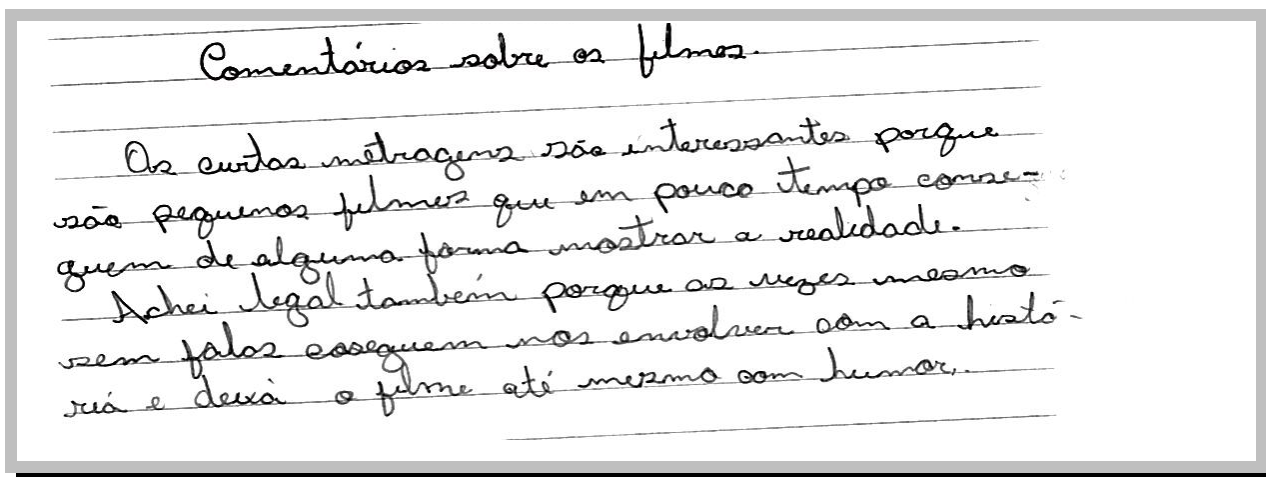 Comentários sobre os filmes.
Os curtas metragens são interessantes porque
são pequenos filmes que em pouco tempo conse-
guem de alguma forma mostrar a realidade.
Achei legal também porque as vezes mesmo
sem falas coseguem nos envolver com a histó-
ria e deixa o filme até mesmo com humor.